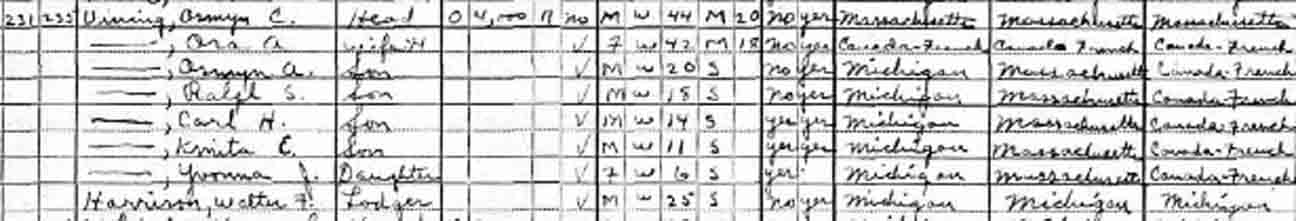 231 235 Vining, Osmyn C. Head O 4,000 R no M W 44 M 20 no yes Massachusetts Massachusetts Massachusetts
——, Ora A. wife H V F W 42 M 18 no yes Canada-French Canada French Canada-French
——, Osmyn A. Son V M W 20 S no yes Michigan Massachusetts Canada-French
——, Ralph S. Son V M W 18 S no yes Michigan Massachusetts Canada-French
——, Carl H. Son V M W 14 S yes yes Michigan Massachusetts Canada-French
——, E. Son V M W 11 S yes yes Michigan Massachusetts Canada-French
——, Yvonna J. Daughter V F W 6 S yes Michigan Massachusetts Canada-French
Harrison, Walter F. Lodger V M W 25 S no yes Michigan Michigan Michigan